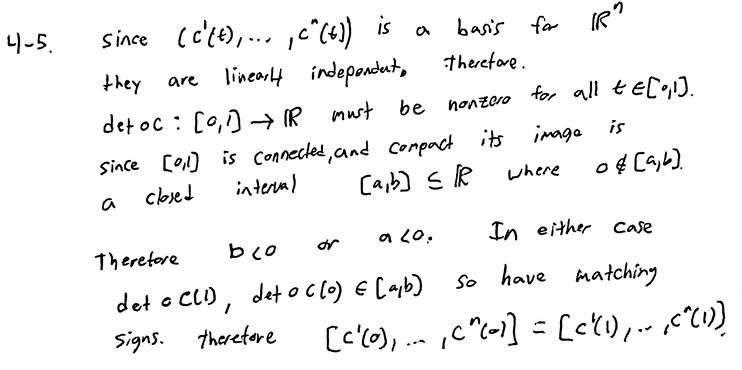 4-5. Since (c¹(t), ... , c^n(t)) is a basis for ℝ^n
they are linearly independent. Therefore.
det o C : [0,1] → ℝ must be nonzero for all t ∈ [0,1].
Since [0,1] is connected, and compact its image is
a closed interval [a,b] ⊆ ℝ where 0 ∉ [a,b].
Therefore b<0 or a<0. In either case
det o C(1), det o C(0) ∈ [a,b] so have matching
signs. therefore [c¹(0), ... , c^n(0)] = [c¹(1), .. , c^n(1)].